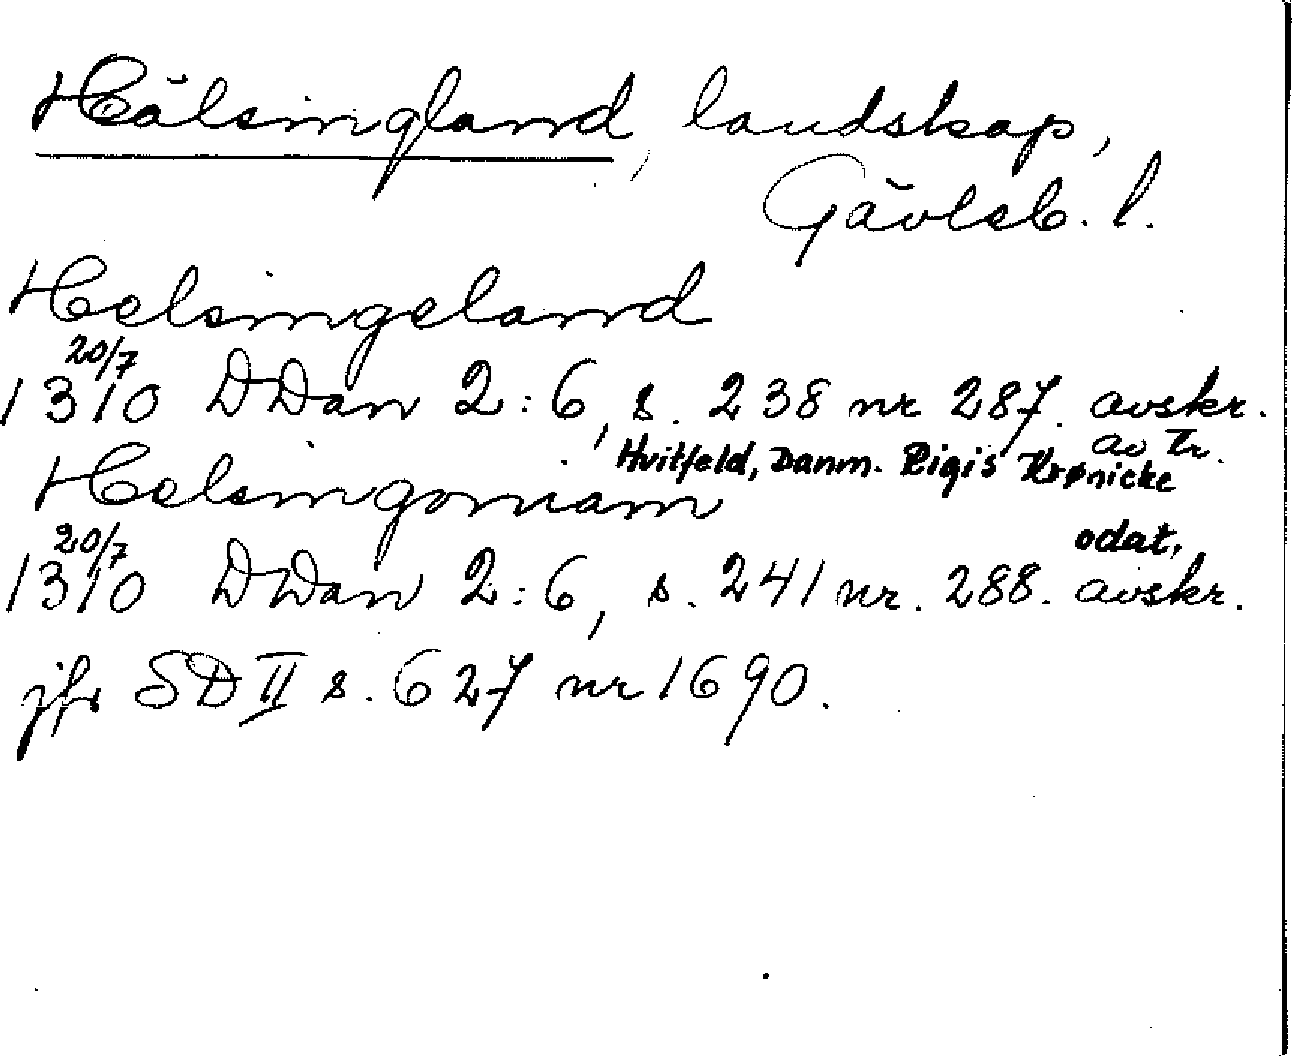 Hälsingland, landskap,
Gävleb. l.
Helsingeland
20/7
1310 DDan 2:6, s. 238 nr 287. avskr.
av tr.
Hvitfeld, Danm. Rigis Krønicke
Helsingornam
odat.
20/7
1310 DDan 2:6, s. 241 nr. 288. avskr.
jfr SD II s. 627 nr 1690.